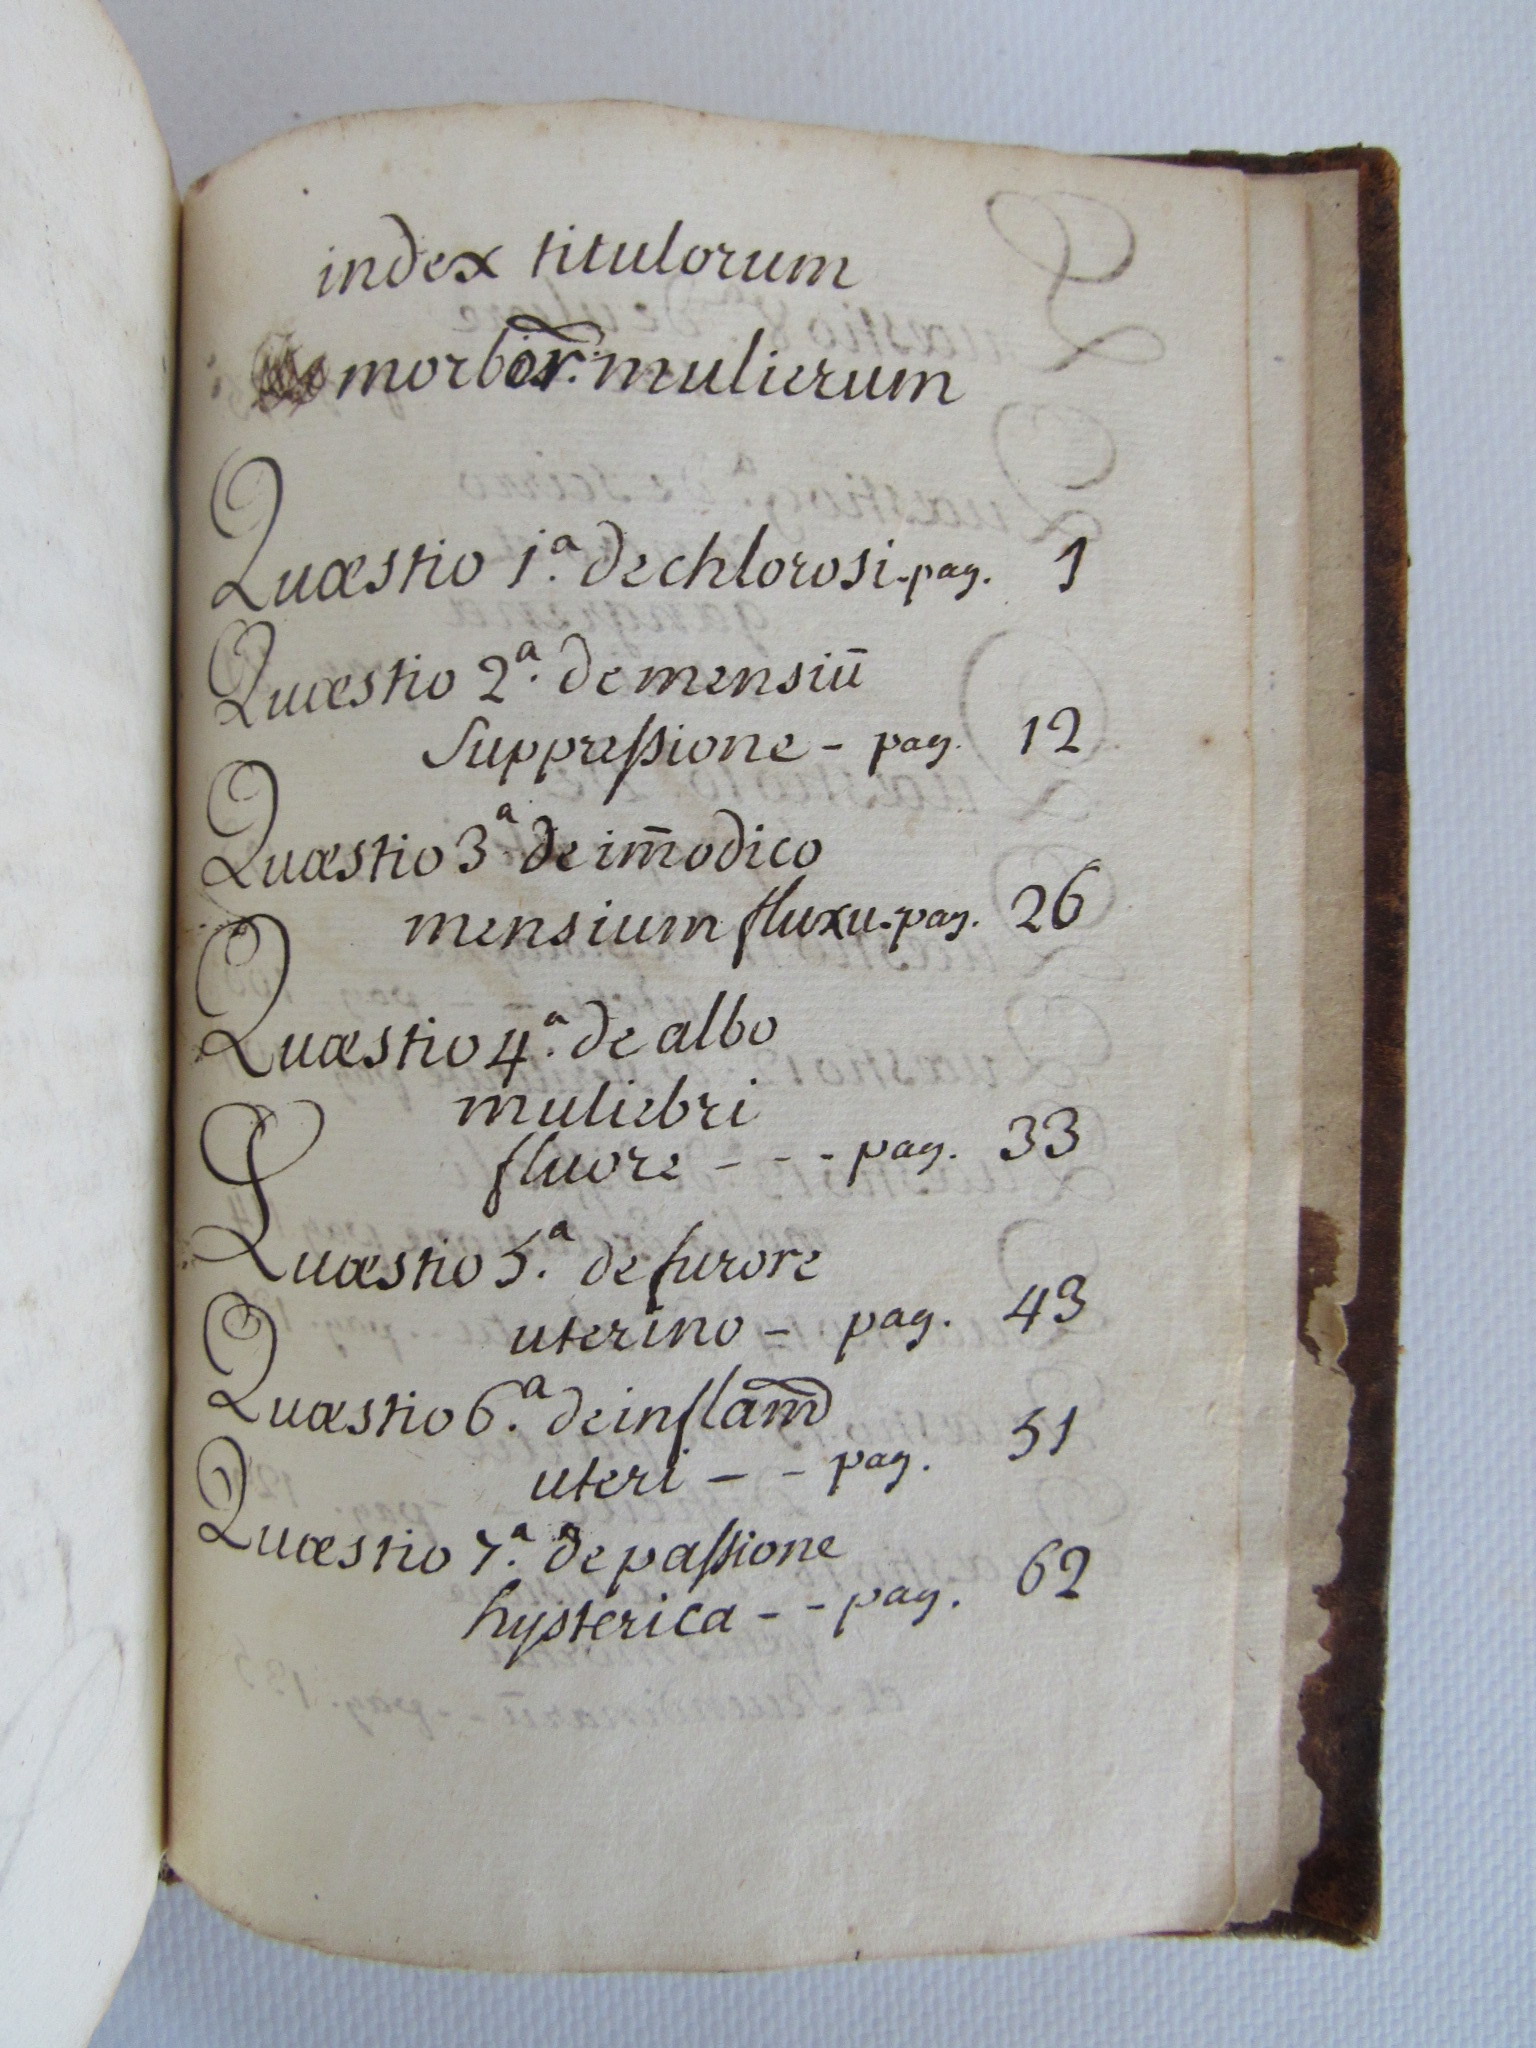 index titulorum
morbor̄. mulierum
Quæstio 1.ª de chlorosi - pag. 1
Quæstio 2.ª de mensiū
Suppreſsione - pag. 12
Quæstio 3.ª de im̄odico
mensium fluxu - pag. 26
Quæstio 4.ª de albo
muliebri
fluore - - - pag. 33
Quæstio 5.ª de furore
uterino - pag. 43
Quæstio 6.ª de inflam̄
uteri - - pag. 51
Quæstio 7.ª de paſsione
hysterica - - pag. 62